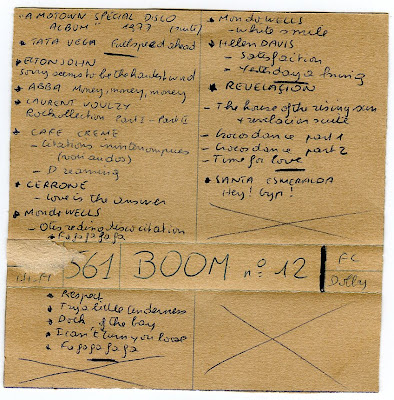 "A MOTOWN SPECIAL DISCO
ALBUM" 1977 (suite)
TATA VEGA Full speed ahead
ELTON JOHN
Sorry seems to be the hardest word
ABBA Money, money, money
LAURENT VOULZY
Rockollection Part I - Part II
CAFE CREME
- Citations ininterrompues
- Dreaming
CERRONE
- Love is the answer
Mondo WELLS
- Otis reding disco citation
• Fa fa fa fa fa
Mondo WELLS
- White smile
Helen DAVIS
- Satisfaction
- Yesterday a
REVELATION
- The house of the rising sun
& revelation suite
- Croco dance part 1
- Croco dance part 2
- Time for love
SANTA ESMERALDA
Hey! Gyp!
Hi.Fi 561 BOOM n° 12 FC
Dolly
• Respect
• Try a little tenderness
• Dock of the bay
• I can't turn you loose
• Fa fa fa fa fa